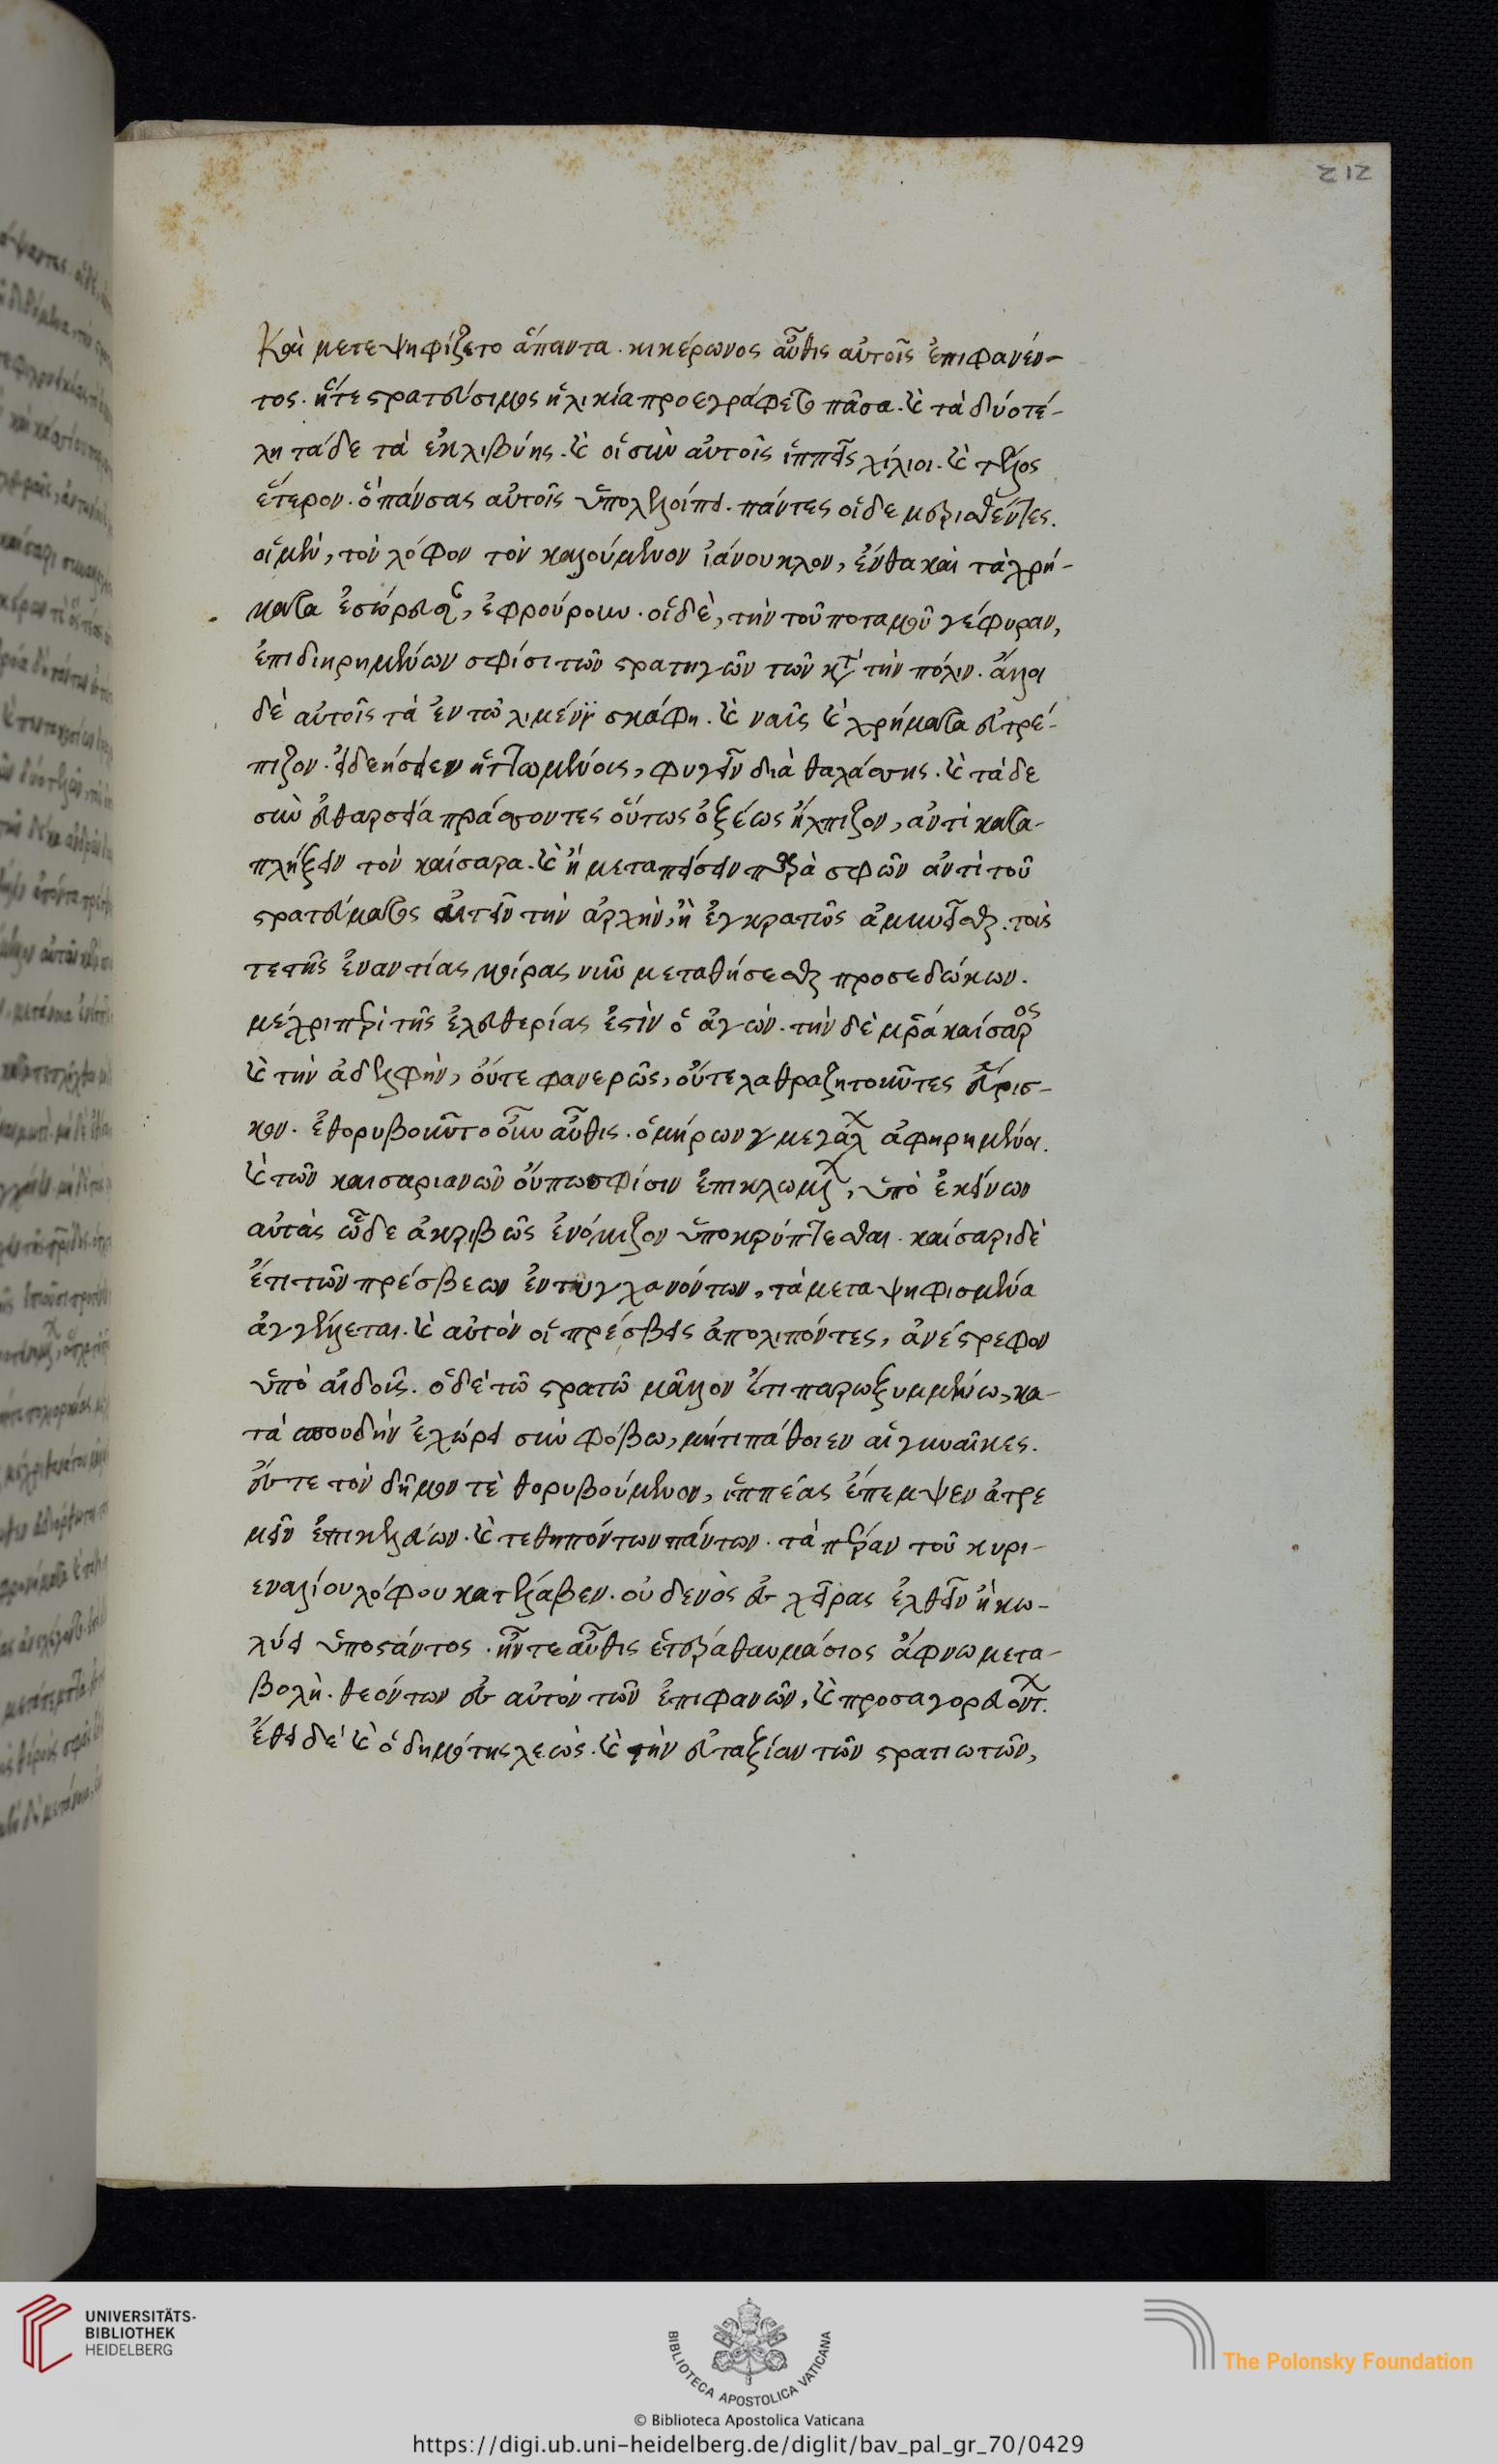 212
Καὶ μετεψηφίζετο ἅπαντα. κικέρωνος αὖθις αὐτοῖς ἐπιφανέν-
τος. ἥτε στρατεύσιμος ἡλικία προεγράφετο πᾶσα. καὶ τὰ δύο τέ-
λη τάδε τὰ ἐκ λιβύης. καὶ οἱ σὺν αὐτοῖς ἱππεῖς χίλιοι. καὶ τέλος
ἕτερον. ὃ πάνσας αὐτοῖς ὑπολελοίπει. πάντες οἵδε μερισθέντες.
οἱ μὲν, τὸν λόφον τὸν καλούμενον ἰάνουκλον, ἔνθα καὶ τὰ χρή-
ματα ἐσώρευτο, ἐφρούρουν. οἱ δὲ, τὴν τοῦ ποταμοῦ γέφυραν,
ἐπιδιῃρημένων σφίσι τῶν στρατηγῶν τῶν κατὰ τὴν πόλιν. ἄλλοι
δὲ αὐτοῖς τὰ ἐν τῷ λιμένι σκάφη. καὶ ναῦς καὶ χρήματα εὐτρέ-
πιζον. εἰ δεήσειεν ἡττωμένοις, φυγεῖν διὰ θαλάσσης. καὶ τάδε
σὺν εὐθαρσείᾳ πράσσοντες οὕτως ὀξέως ἤλπιζον, ἀντικατα-
πλήξειν τὸν καίσαρα. καὶ ἢ μεταπείσειν παρὰ σφῶν ἀντὶ τοῦ
στρατεύματος αἰτεῖν τὴν ἀρχὴν, ἢ ἐγκρατῶς ἀμυνεῖσθαι. τούς
τε τῆς ἐναντίας μοίρας νῦν μεταθήσεσθαι προσεδόκων.
μέχρι περὶ τῆς ἐλευθερίας ἐστὶν ὁ ἀγών. τὴν δὲ μητέρα καίσαρος
καὶ τὴν ἀδελφὴν, οὔτε φανερῶς, οὔτε λάθρα ζητοῦντες εὕρισ-
κον. ἐθορυβοῦντο οὖν αὖθις. ὁμήρων γ μεγάλων ἀφῃρημένοι.
καὶ τῶν καισαριανῶν οὔπω σφίσιν ἐπικλωμένων, ὑπὸ ἐκείνων
αὐτὰς ὧδε ἀκριβῶς ἐνόμιζον ὑποκρύπτεσθαι. καίσαρι δὲ
ἔτι τῶν πρέσβεων ἐντυγχανόντων, τὰ μεταψηφισμένα
ἀγγέλλεται. καὶ αὐτὸν οἱ πρέσβεις ἀπολιπόντες, ἀνέστρεφον
ὑπὸ αἰδοῦς. ὁ δὲ τῷ στρατῷ μᾶλλον ἔτι παρωξυμμένω, κα-
τὰ σπουδὴν ἐχώρει σὺν φόβω, μή τι πάθοιεν αἱ γυναῖκες.
ἔς τε τὸν δῆμον τὲ θορυβούμενον, ἱππέας ἔπεμψεν ἀτρε
μεῖν ἐπικελεύων. καὶ τεθηπότων πάντων. τὰ πέραν τοῦ κυρι-
εναλίου λόφου κατέλαβεν. οὐδενὸς ἐς χεῖρας ἐλθεῖν ἢ κω-
λύει ὑποστάντος. ἦν τε αὖθις ἑτέρα θαυμάσιος ἄφνω μετα-
βολὴ. θεόντων ἐς αὐτὸν τῶν ἐπιφανῶν, καὶ προσαγορευόντων.
ἔθει δὲ καὶ ὁ δημότης λεὼς. καὶ τὴν εὐταξίαν τῶν στρατιωτῶν,
UNIVERSITÄTS-
BIBLIOTHEK
HEIDELBERG
BIBLIOTECA APOSTOLICA VATICANA
The Polonsky Foundation
© Biblioteca Apostolica Vaticana
https://digi.ub.uni-heidelberg.de/diglit/bav_pal_gr_70/0429